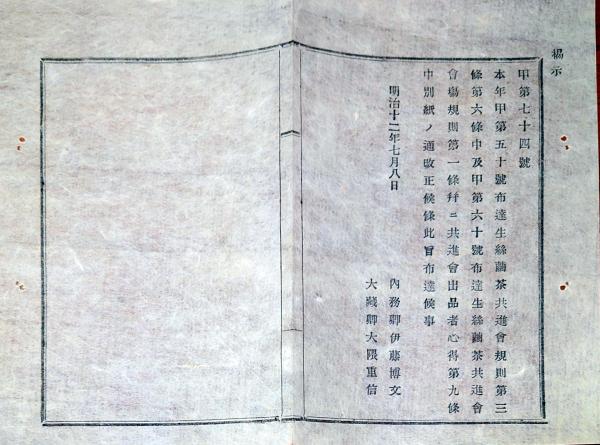 揭示
甲第七十四號
本年甲第五十號布達生絲繭茶共進會規則第三
條第六條中及甲第六十號布達生絲繭茶共進會
會場規則第一條幷ニ共進會出品者心得第九條
中別紙ノ通改正候條此旨布達候事
明治十二年七月八日
內務卿伊藤博文
大藏卿大隈重信